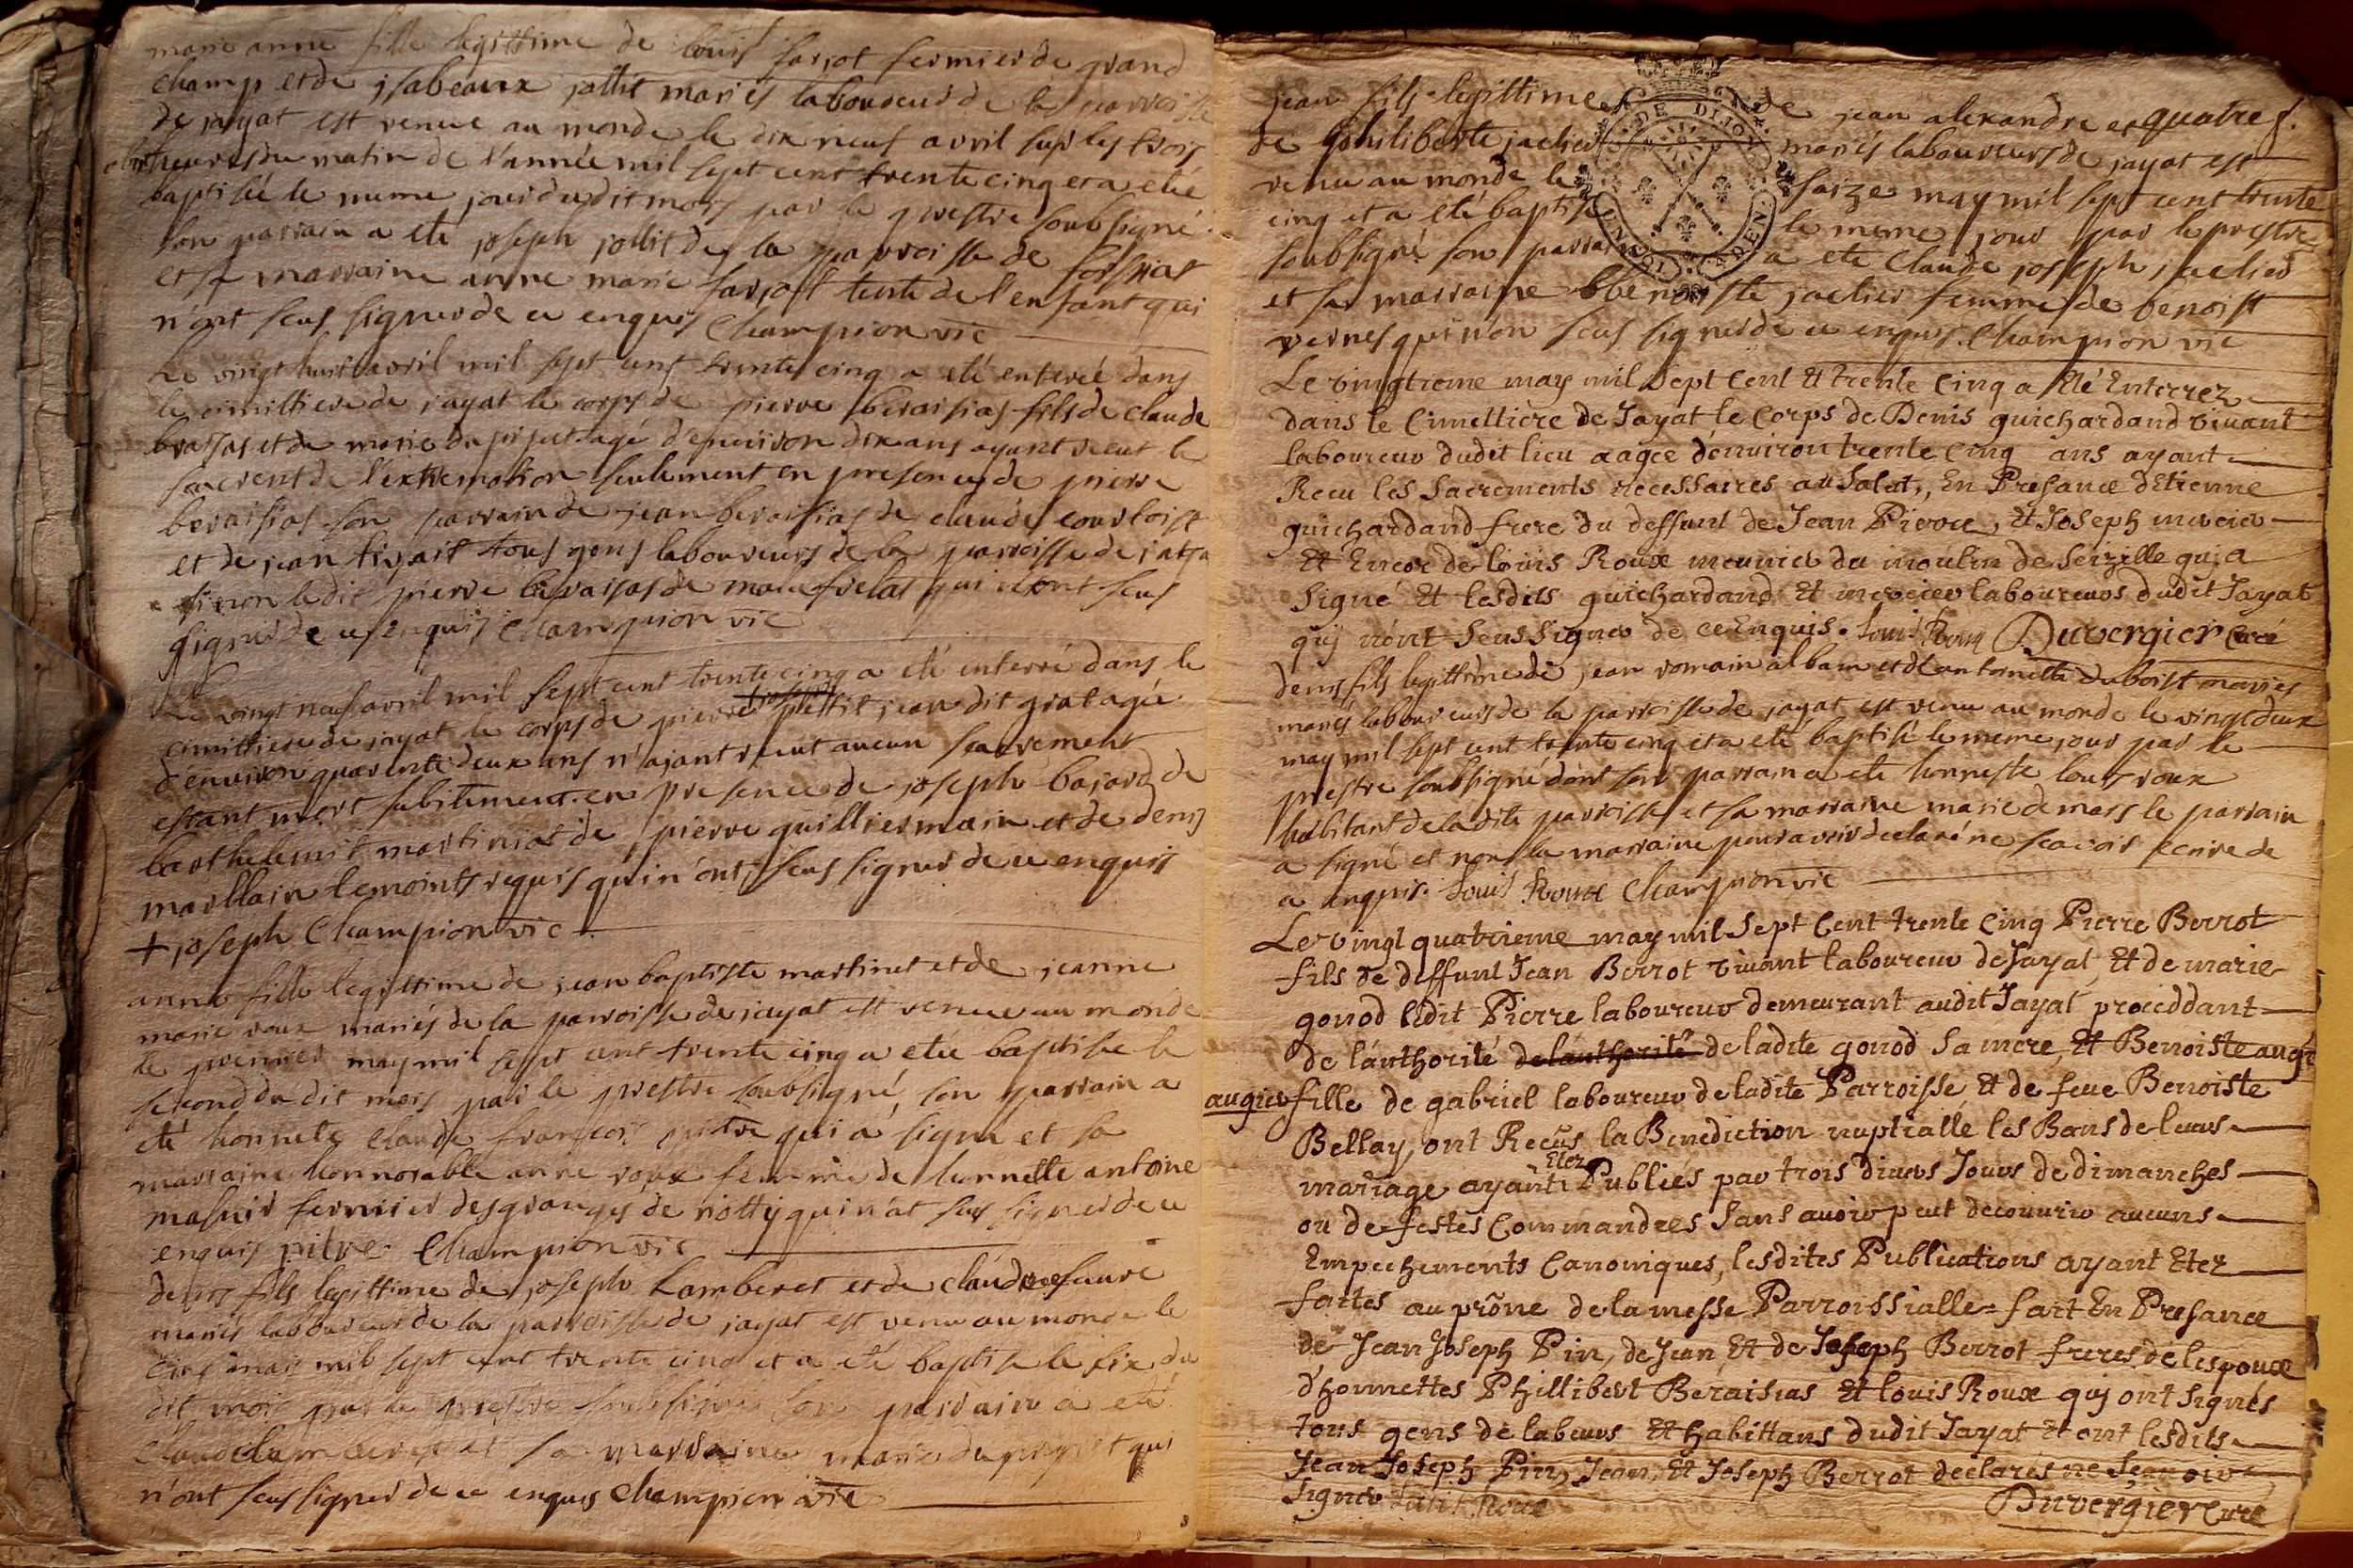 marie anne fille legittime de louis farjot fermier de grand
champ et de isabeaux jollit mariés laboureur de la parroisse
de jayat est venue au monde le dix neuf avril sur les trois
heures du matin de l'année mil sept cent trente cinq et a eté
baptisée le meme jour dudit mois par le prestre soubsigné
son parrain a eté joseph jollit de la parroisse de
et sa marraine anne marie farjost tente de l'enfant qui
n'ont seus signer de ce enquis Champion vic
Le vingt huit avril mil sept cent trente cinq a eté enterée dans
le cimittiere de jayat le corps de pierre beraisias fils de claude
et de marie agé d'enuiron dix ans ayant receut le
sacrent de l'extremotion seulement en presence de pierre
beraisias son parrain de jean beraisias de claude courtoist
et de jean tous gens laboureurs de la parroisse de
sinon ledit pierre de qui n'ont seus
signer de ce enquis Champion vic
Le vingt neuf avril mil sept cent trente cinq a eté interré dans le
cimittiere de jayat le corps de pierre petit jean dit grat agée
d'enuiron quarente deux ans n'ajant receut aucun sacrement
estant mort subitement en presence de joseph bajard de
barthelemit martinias de pierre guilliermain et de denis
maillain temoints requis qui n'ont seus signer de ce enquis
+ joseph Champion vic
anne fille legittime de jean baptiste martinet et de jeanne
marie roux mariés de la parroisse de jayat est venue au monde
le premier may mil sept cent trente cinq a etée baptisée le
second dudit mois par le prestre soubsigné, son parrain a
eté honnete claude françois pitre qui a signé et sa
marraine honnorable anne roux femme de honnette antoine
masuir fermier des granges de qui n'at seus signer de ce
enquis pitre Champion vic
denis fils legittime de joseph Lamberet et de claudine faure
mariés laboureur de la parroisse de jayat est venu au monde le
cinq mais mil sept cent trente cinq et a eté baptisé le six du
dit mois par le prestre soubsigné son parrain a eté
claude lamberet et sa marraine marie qui
n'ont seus signer de ce enquis Champion vic
quatre f.
jean fils legittime de jean alexandre et
de philiberte jaclier mariés laboureurs de jayat est
venu au monde le saize may mil sept cent trente
cinq et a eté baptisé le meme jour par le prestre
soubsigné son parrain a eté claude joseph jaclier
et sa marraine bbenoiste jaclier femme de benoist
vernes qui n'on seus signer de ce enquis. Champion vic
DE DIJON
Le vingtieme may mil sept cent Et trente cinq a Eté Enterrez
dans le Cimettiere de Jayat le Corps de Denis guichardand vivant
laboureur dudit lieu aagée d'enuiron trente cinq ans ayant
Recu les Sacrements necessaires au Salut, En Presance d'Etienne
guichardand frere du deffunt de Jean Pierre, Et Joseph mercier
Et Encor de louis Roux meunier du moulin de Sezille qui a
Signé Et lesdits guichardand Et mercier laboureurs dudit Jayat
quj n'ont Seus Signer de ce Enquis. Louis Roux Duvergier Curé
denis fils legittime de jean romain alban et de antoinette duboist mariés
mariés laboureurs de la parroisse de jayat est venu au monde le vingt deux
may mil sept cent trente cinq et a eté baptisé le meme jour par le
prestre soubsigné dont son parrain a eté honneste louis roux
habitant de la dite parroisse et sa marraine marie de mars le parrain
a signé et non la marraine pour avoir declaré ne scavoir ecrire de
ce enquis. Louis Roux Champion vic
Le vingt quatrieme may mil Sept Cent trente Cinq Pierre Berrot
fils de deffunt Jean Berrot vivant laboureur de Jayat, Et de marie
gonod ledit Pierre laboureur demeurant audit Jayat proceddant
de l'authorité de l'authorité de ladite gonod sa mere, Et Benoiste augi
augier fille de gabriel laboureur de ladite Parroisse, Et de feue Benoiste
Bellay, ont Recûs la Benediction nuptialle les Bans de leurs
mariage ayant Etez Publiés par trois divers Jours de dimanches
ou de festes Commandées Sans auoir peut decouurir aucuns
Empechements Canoniques, lesdites Publications ayant Etez
faites au prône de la messe Parroissialle fait En Presance
de Jean Joseph Pin, de Jean Et de Joseph Berrot freres de lespoux
d'honnettes Phillibert Beraisias Et louis Roux quj ont Signés
tous gens de labeurs Et habittans dudit Jayat Et ont lesdits
Jean Joseph Pin, Jean, Et Joseph Berrot declarés ne Sçauoir
Signer Louis Roux Duvergier Curé